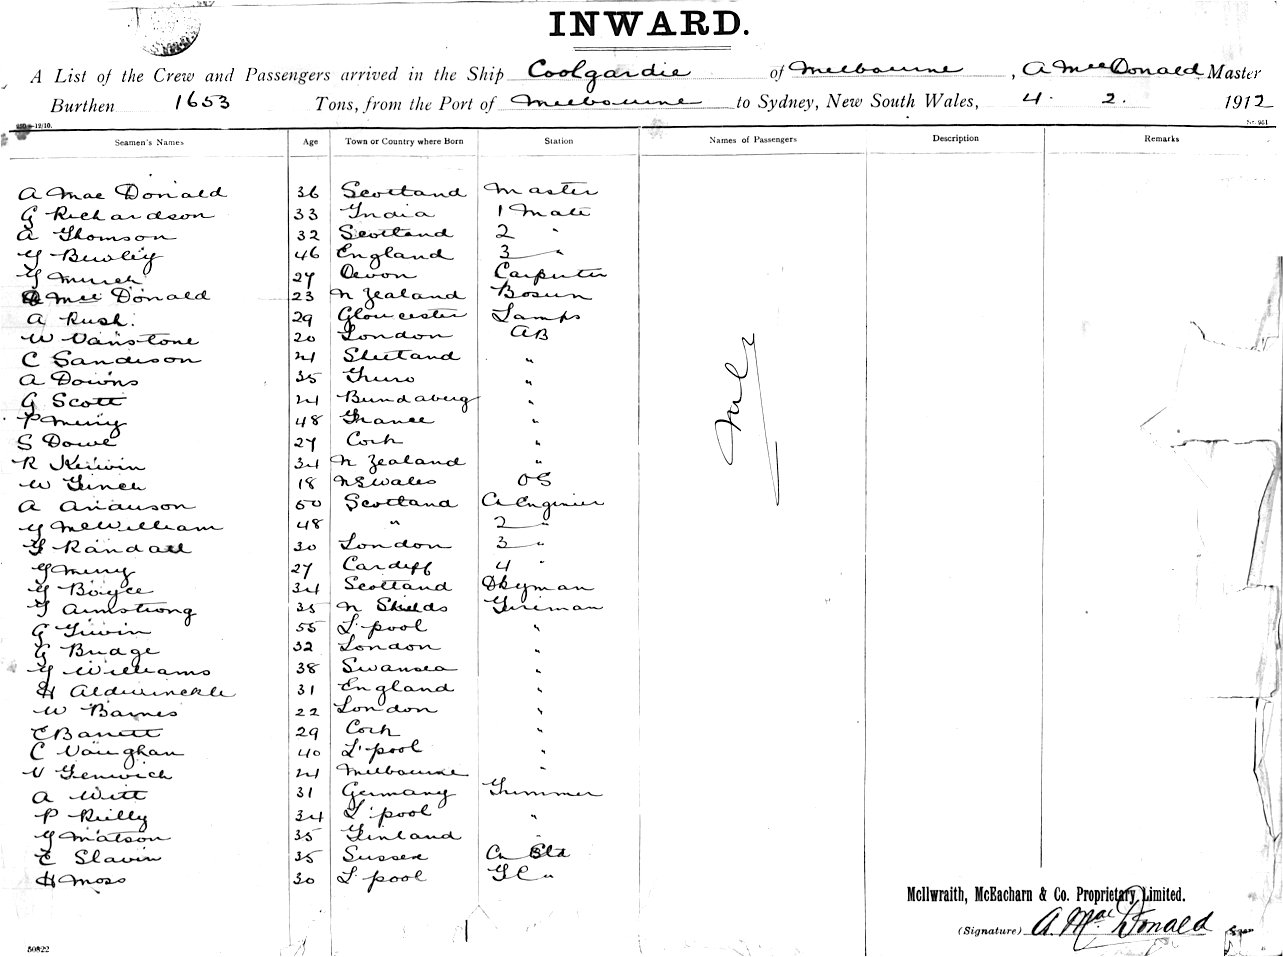 INWARD.
A List of the Crew and Passengers arrived in the Ship Coolgardie of Melbourne, A MacDonald Master
Burthen 1653 Tons, from the Port of Melbourne to Sydney, New South Wales, 4. 2. 1912
Seamen's Names Age Town or Country where Born Station Names of Passengers Description Remarks
A Mac Donald 36 Scotland Master
G Richardson 33 India 1 Mate
A Thomson 32 Scotland 2 "
46 England 3 "
27 Devon Carpenter
Mac Donald 23 N Zealand Bosun
A Rush. 29 Gloucester Lamps
W Vanstone 20 London AB
C Sandison 24 Shetland "
A Downs 35 Truro "
G Scott 24 Bundaberg "
P 48 France "
S Dowe 27 Cork "
R Keirwin 34 N Zealand "
W Finch 18 NSWales OS
A Anderson 50 Scotland Ch Enginier
McWilliam 48 " 2 "
Randall 30 London 3 "
27 Cardiff 4 "
Boyce 34 Scotland Dkyman
Armstrong 35 N Shields Fireman
G 55 L'pool "
G Budge 32 London "
Williams 38 Swansea "
H Aldwinckle 31 England "
W Barnes 22 London "
E Barrett 29 Cork "
C Vaughan 40 L'pool "
V Fenwick 24 Melbourne "
A Witt 31 Germany Trimmer
P Reilly 34 L'pool "
Matson 35 Finland "
E Slavin 35 Sussex Ch Std
H Moss 30 L'pool "
Nil
McIlwraith, McEacharn & Co. Proprietary Limited.
(Signature) A. Mac Donald
50822